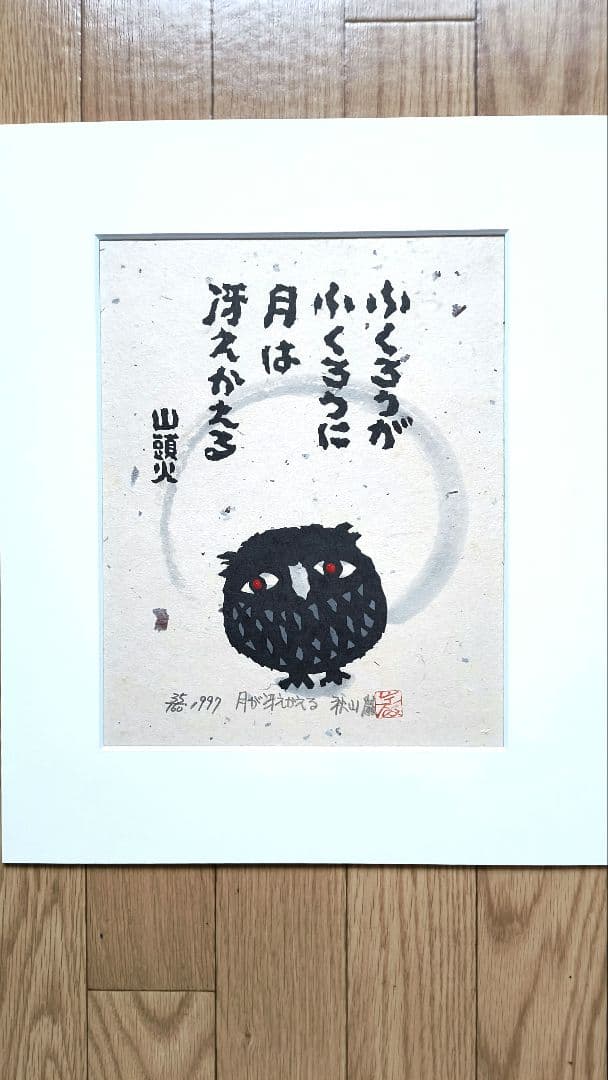 ふくろうが
ふくろうに
月は
冴えかえる
山頭火
1997 月が冴えかえる 秋山巌